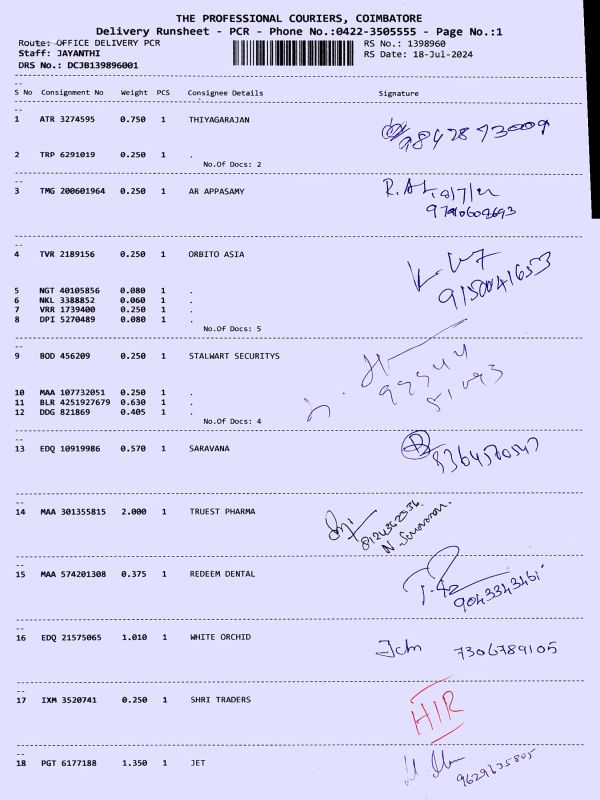 THE PROFESSIONAL COURIERS, COIMBATORE
Delivery Runsheet - PCR - Phone No.:0422-3505555 - Page No.:1
Route: OFFICE DELIVERY PCR RS No.: 1398960
Staff: JAYANTHI RS Date: 18-Jul-2024
DRS No.: DCJB139896001
S No Consignment No Weight PCS Consignee Details Signature
1 ATR 3274595 0.750 1 THIYAGARAJAN
9842873009
2 TRP 6291019 0.250 1 .
No.Of Docs: 2
3 TMG 200601964 0.250 1 AR APPASAMY
9790609693
4 TVR 2189156 0.250 1 ORBITO ASIA
9150041653
5 NGT 40105856 0.080 1 .
6 NKL 3388852 0.060 1 .
7 VRR 1739400 0.250 1 .
8 DPI 5270489 0.080 1 .
No.Of Docs: 5
9 BOD 456209 0.250 1 STALWART SECURITYS
99944
51093
10 MAA 107732051 0.250 1 .
11 BLR 4251927679 0.630 1 .
12 DDG 821869 0.405 1 .
No.Of Docs: 4
13 EDQ 10919986 0.570 1 SARAVANA
14 MAA 301355815 2.000 1 TRUEST PHARMA
8124362536
15 MAA 574201308 0.375 1 REDEEM DENTAL
9043343461
16 EDQ 21575065 1.010 1 WHITE ORCHID
7306789105
17 IXM 3520741 0.250 1 SHRI TRADERS
HIR
18 PGT 6177188 1.350 1 JET
9629635805